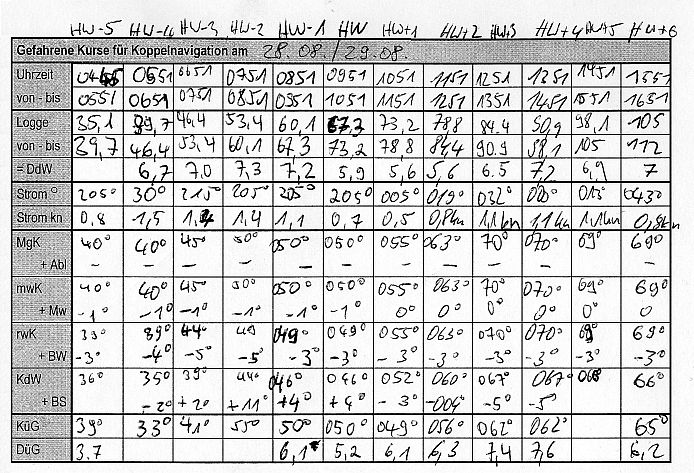 HW-5 HW-4 HW-3 HW-2 HW-1 HW HW+1 HW+2 HW+3 HW+4 HW+5 HW+6
Gefahrene Kurse für Koppelnavigation am 28.08./29.08.
Uhrzeit 0551 0651 0751 0851 0951 1051 1151 1251 1351 1451 1551
von - bis 0551 0651 0751 0851 0951 1051 1151 1251 1351 1451 1551 1651
Logge 35,1 39,7 46,4 53,4 60,1 67,3 73,2 78,8 84.4 90,9 98,1 105
von - bis 39,7 46,4 53,4 60,1 67,3 73,2 78,8 84,4 90.9 98,1 105 112
= DdW 6,7 7,0 7,3 7,2 5,9 5,6 5,6 6.5 7,2 6,9 7
Strom ° 205° 30° 215° 205° 205° 205° 005° 019° 032° 013° 043°
Strom kn 0,8 1,5 1,4 1,1 0,7 0,5 0,8kn 1,1kn 1,1kn 1,1kn 0,8kn
MgK 40° 40° 45° 50° 050° 050° 055° 063° 70° 070° 69° 69°
+ Abl – – – – – – – – – – – –
mwK 40° 40° 45° 50° 050° 050° 055° 063° 70° 070° 69° 69°
+ Mw -1° -1° -1° -1° -1° -1° 0° 0° 0° 0° 0° 0
rwK 39° 44° 49 049° 049° 055° 063° 070° 070° 69° 69°
+ BW -3° -4° -5° -5° -3° -3° -3° -3° -3° -3° -3° -3°
KdW 36° 35° 39° 44° 046° 046° 052° 060° 067° 067° 66°
+ BS -2° +2° +11° +4° +4° -3° -004° -5° -5°
KüG 39° 33° 41° 55° 50° 050° 049° 056° 062° 062° 65°
DüG 3.7 6,1 5,2 6,1 6,3 7,4 7,6 6,2